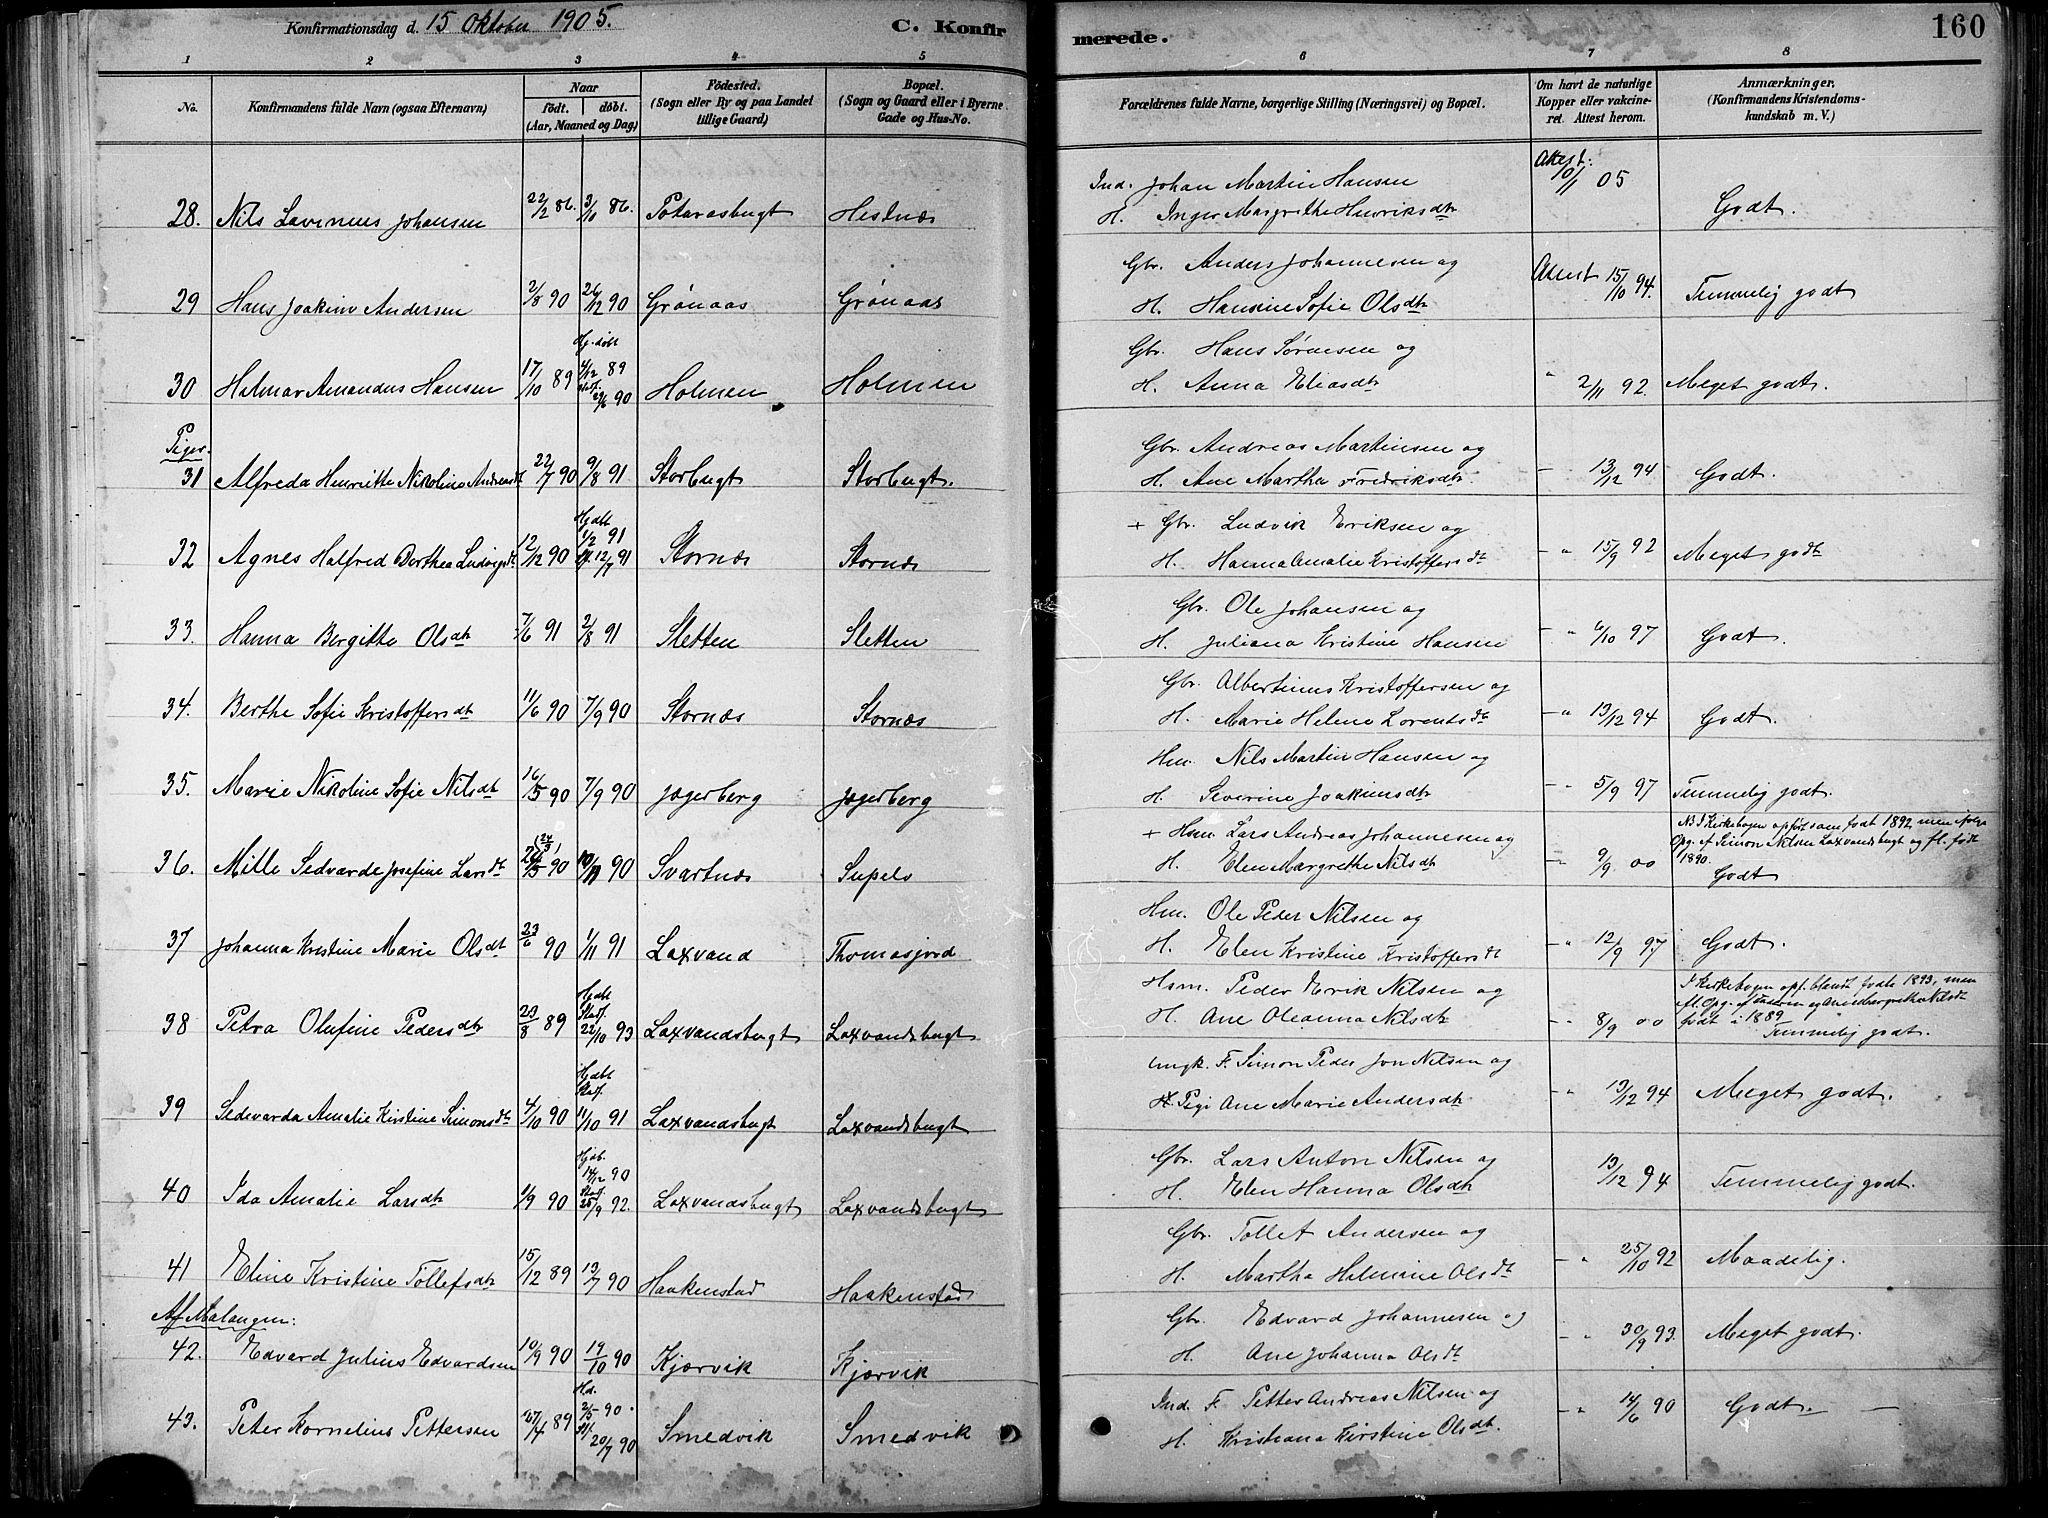 Konfirmationsdag d. 15 Oktober 1905. C. Konfirmerede. 160
1 2 3 4 5 6 7 8
No. Konfirmandens fulde Navn (ogsaa Efternavn) Naar født. døbt. (Aar, Maaned og Dag) Fødested. (Sogn eller By og paa Landet tillige Gaard) Bopæl. (Sogn og Gaard eller i Byerne Gade og Hus-No. Forældrenes fulde Navne, borgerlige Stilling (Næringsvei) og Bopæl. Om havt de naturlige Kopper eller vakcineret. Attest herom. Anmærkninger. (Konfirmandens Kristendomskundskab m. V.)
28. Nils Lavinius Johansen 22/2 86. 3/10 86. Poteræsbugt Hestnæs Ind. Johan Martin Hansen H. Inger Margrethe Henriksdtr Attest: 10/1 05 Godt.
29 Hans Joakim Andersen 2/8 90 26/12 90 Grönaas Grönaas Gbr. Anders Johannesen og H. Hansine Sofie Olsdtr Attest 15/10 94. Temmelig godt
30 Halmar Amandus Hansen 17/10 89 Hj. døbt 4/12 89 Stadf. 29/6 90 Holmen Holmen Gbr. Hans Sørensen og H. Anna Eliasdtr " 2/11 92. Meget godt.
Piger.
31 Alfreda Henriette Nikoline Andreasdt 22/7 90 9/8 91 Storbugt Storbugt. Gbr. Andreas Martinsen og H. Ane Martha Fredriksdtr. - 13/12 94 Godt.
32 Agnes Halfred Berthea Ludvigsdt 12/12 90 Hjdbt 1/2 91 St. 12/7 91 Stornæs Stornæs + Gbr. Ludvik Eriksen og H. Hanna Amalie Kristoffersdt - " 15/9 92 Meget godt
33. Hanna Bergitte Olsdtr 7/6 91 2/8 91 Sletten Sletten Gbr. Ole Johansen og H. Juliana Kristine Hansen - " 6/10 97 Godt.
34. Berthe Sofie Kristoffersdt 11/6 90 7/9 90 Stornæs Stornæs Gbr. Albertinus Kristoffersen og H. Marie Helene Lorentsdtr - " 13/12 94 Godt.
35. Marie Nikoline Sofie Nilsdt 16/5 90 7/9 90 Jægerberg Jægerberg Hm. Nils Martin Hansen og H. Severine Joakimsdtr - " 5/9 97 Temmelig godt.
36. Mille Sedvarde Josefine Larsdt 90 90 Svartnæs Supelv + Hsm. Lars Andreas Johannesen og H. Elen Margrethe Nilsdt - " 9/9 00 NB I Kirkebogen opført som født 1892, men Opg. af Simon Nilsen Laxvandsbugt og fl. født 1890. Godt
37 Johanna Kristine Marie Olsdt 23/6 90 1/11 91 Laxvand Thomasjord Hm. Ole Peder Nilsen og H. Elen Kristine Kristoffersdt - " 12/9 97 Godt.
38 Petra Olufine Pedersdtr 23/8 89 Hjdbt Stadf. 22/10 93 Laxvandsbugt Laxvandsbugt Hsm. Peder Erik Nilsen og H. Ane Oleanna Nilsdtr - " 8/9 00 I Kirkebogen opf. blandt fødte 1893, men Opg. af Faderen og Ane Margrethe Nilsdt født i 1889 Temmelig godt.
39 Sedvarda Amalie Kirstine Simonsdt 4/10 90 Hjdbt Stadf. 11/10 91 Laxvandsbugt Laxvandsbugt Ungk. F. Simon Peder Jon Nilsen og Pige Ane Marie Andersdtr - " 13/12 94 Meget godt.
40 Ida Amalie Larsdtr 1/9 90 Hjdb. 14/12 90 Stadf. 25/9 92. Laxvandsbugt Laxvandsbugt Gbr. Lars Anton Nilsen og H. Elen Hanna Olsdtr 13/12 94 Temmelig godt.
41 Eline Kristine Tollefsdtr 15/12 89 13/7 90 Haakenstad Haakenstad Gbr. Tollef Andersen og H. Martha Helmine Olsdt - " 25/10 92 Maadelig.
Af Malangen:
42. Edvard Julius Edvardsen 10/9 90 19/10 90 Kjærvik Kjærvik Gbr. Edvard Johannesen og H. Ane Johanna Olsdt - " 30/9 93. Meget godt.
43. Peter Kornelius Pettersen 27/4 89 Hd. 2/5 90. St. 20/7 90 Smedvik Smedvik Ind. F. Petter Andreas Nilsen og H. Kristiana Kirstine Olsdt. - " 14/6 90 Godt. —